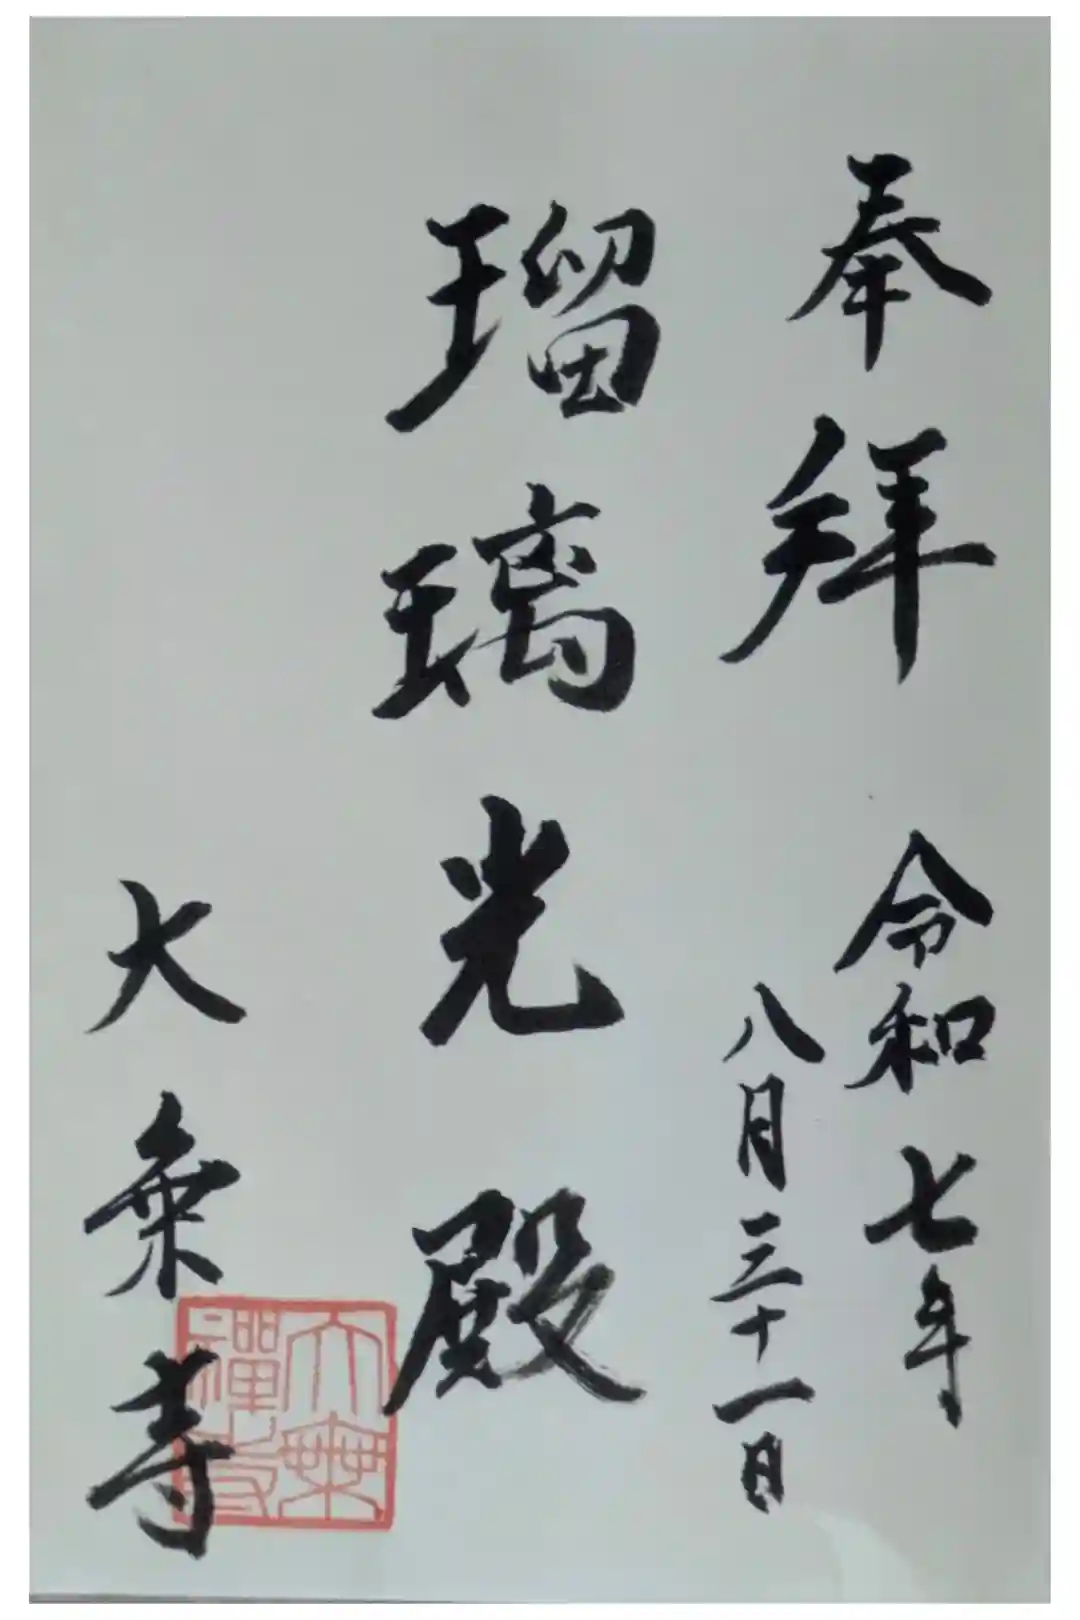 奉拝
令和七年
八月三十一日
瑠璃光殿
大乗寺
大乗
禅寺